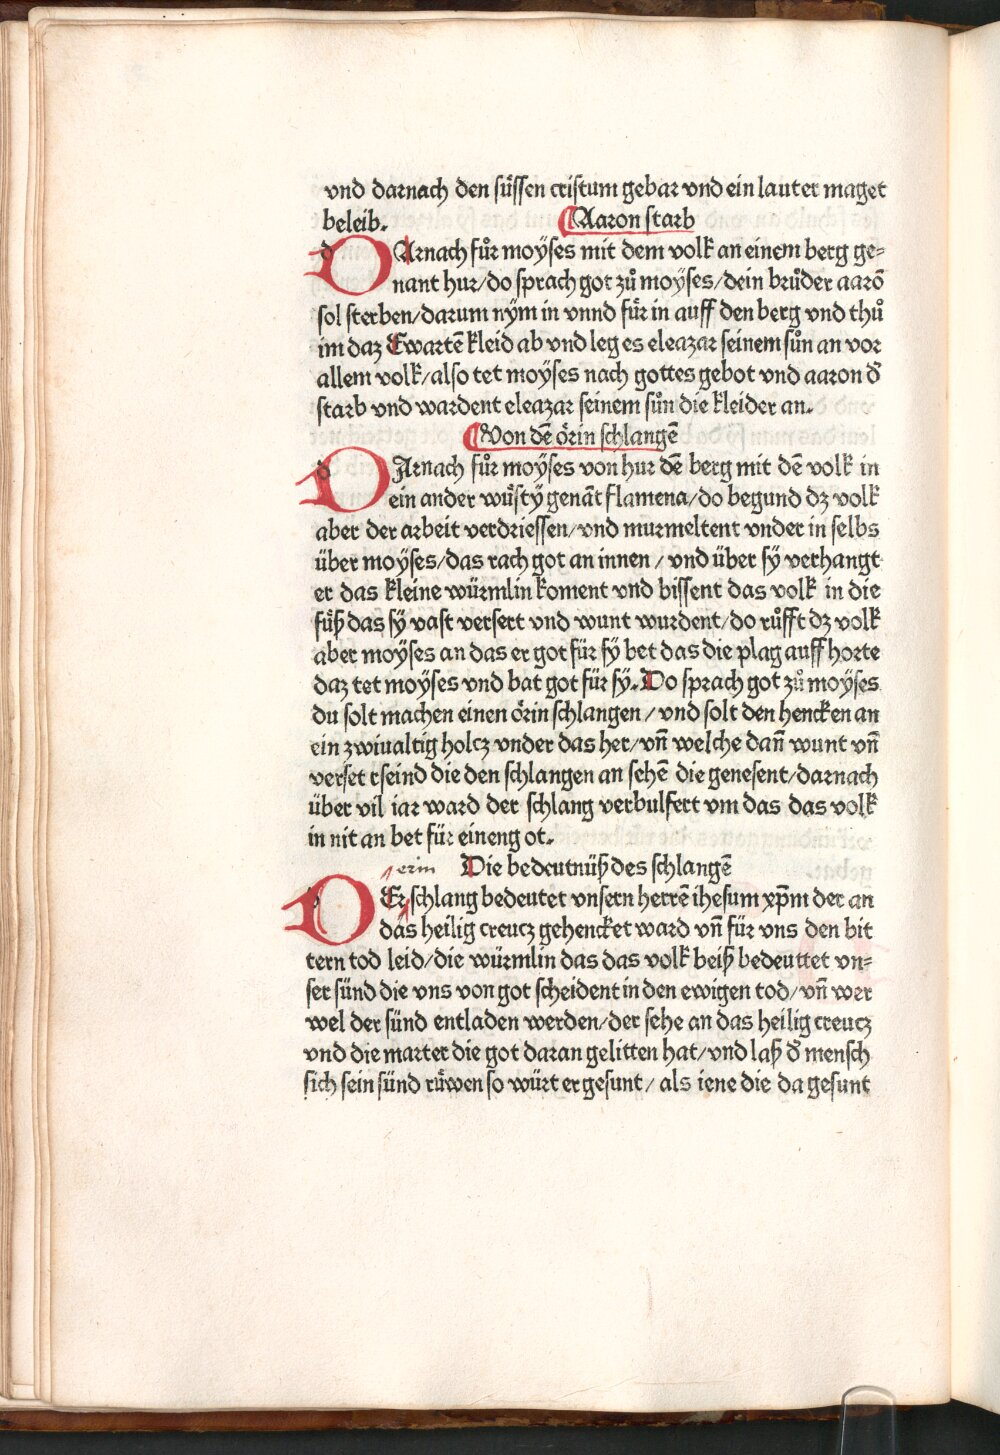 vnd darnach den süssen cristum gebar vnd ein lauter maget
beleib. Aaron starb
DArnach fůr moÿses mit dem volk an einem berg ge-
nant hur/do sprach got zů moÿses/dein brůder aarō
sol sterben/darum nÿm in vnnd für in auff den berg vnd thů
im daz Ewartē kleid ab vnd leg es eleazar seinem sůn an vor
allem volk/also tet moÿses nach gottes gebot vnd aaron đ
starb vnd wardent eleazar seinem sůn die kleider an.
Von dē örin schlangē
DArnach fůr moÿses von hur dē berg mit dē volk in
ein ander wůstÿ genāt flamena/do begund dz volk
aber der arbeit verdriessen/vnd murmeltent vnder in selbs
über moÿses/das rach got an innen/vnd über sÿ verhangt
er das kleine würmlin koment vnd bissent das volk in die
füß das sÿ vast versert vnd wunt wurdent/do růfft dz volk
aber moÿses an das er got für sÿ bet das die plag auff horte
daz tet moÿses vnd bat got für sÿ. Do sprach got zů moÿses
du solt machen einen örin schlangen/vnd solt den hencken an
ein zwiualtig holcz vnder das her/vn̄ welche dan̄ wunt vn̄
verset rseind die den schlangen an sehē die genesent/darnach
über vil iar ward der schlang verbulfert vm das das volk
in nit an bet für eineng ot.
erin Die bedeutnüß des schlangē
DEr schlang bedeutet vnsern herrē ihesum xp̄m der an
das heilig creucz gehencket ward vn̄ für vns den bit
tern tod leid/die würmlin das das volk beiß bedeuttet vn-
ser sünd die vns von got scheident in den ewigen tod/vn̄ wer
wel der sünd entladen werden/der sehe an das heilig creucz
vnd die marter die got daran gelitten hat/vnd laß đ mensch
sich sein sünd rüwen so würt er gesunt/als iene die da gesunt